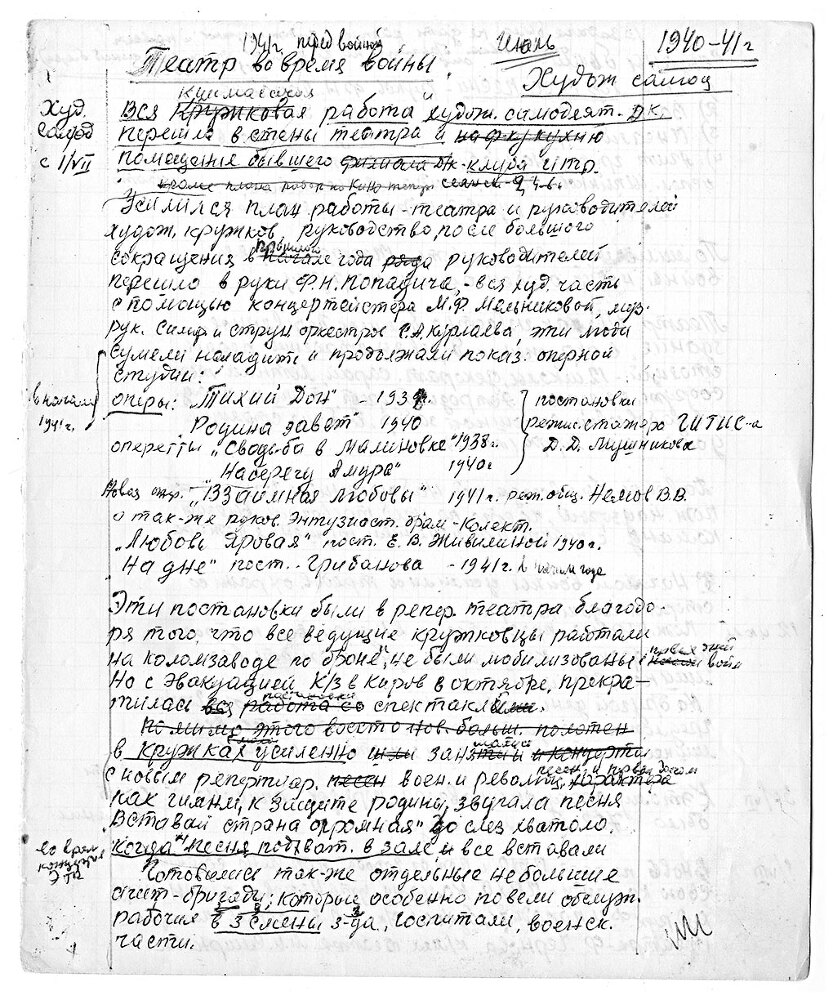 1941г. перед войной Июль 1940-41г
Театр во время войны. Худож самод
Худ. самод с 1/VII
Кинмасская
Вся Кружковая работа и худож. самодеят. ДК,
перешла в стены театра и на ф-ку/кухню
помещение бывшего филиала ДК-клуба ИТР.
кроме плана работ по Кино театру сеансы
Усилился план работы - театра и руководителей
худож. кружков, руководство, после большого
прошлом
сокращения в начале года ряда руководителей
перешло в руки Ф.Н. Попадича, - вся худ. часть
с помощью концертмейстера М.Ф. Мельниковой, муз.
рук. симф и струн оркестров С.А. Курлаева, эти люди
сумели наладить и продолжали показ. оперной
студии:
в начале 1941г.
оперы: "Тихий Дон" - 1939.
Родина зовет" 1940
оперетты "Свадьба в Малиновке" 1938г.
На берегу Амура" 1940г
постановки
режис. стажера ГИТИС-а
Д.Д. Мушникова
Новая опер. - "Взаимная любовь" 1941г. реж. общ. Немов В.В.
а так-же руков. Энтузиаст. драм-колект.
"Любовь Яровая" пост. Е.В. Живилиной 1940г.
На дне" пост. - Грибанова - 1941г. в начале года
Эти постановки были в репер. театра благода-
ря того, что все ведущие кружковцы работали
первых дней
на коломзаводе по броне, не были мобилизованы войн
Но с эвакуацией К/З в Киров в октябре, прекра-
постановки
тилась вся работа со спектаклями.
Помимо этого восстанов. больш. полотен
в кружках усиленно шли занятия и концерты
песен
с новым репертуар. песен воен. и револющ, характера
как гимны, к защите родины, звучала песня
"Вставай страна огромная" до слез хватало,
во врем. концертов
когда песня подхват. в зале, и все вставали
Готовились так-же отдельные небольшие
агит-бригады, которые особенно повели обслуж.
рабочих в 3 смены з-да, госпитали, воинск.
части.